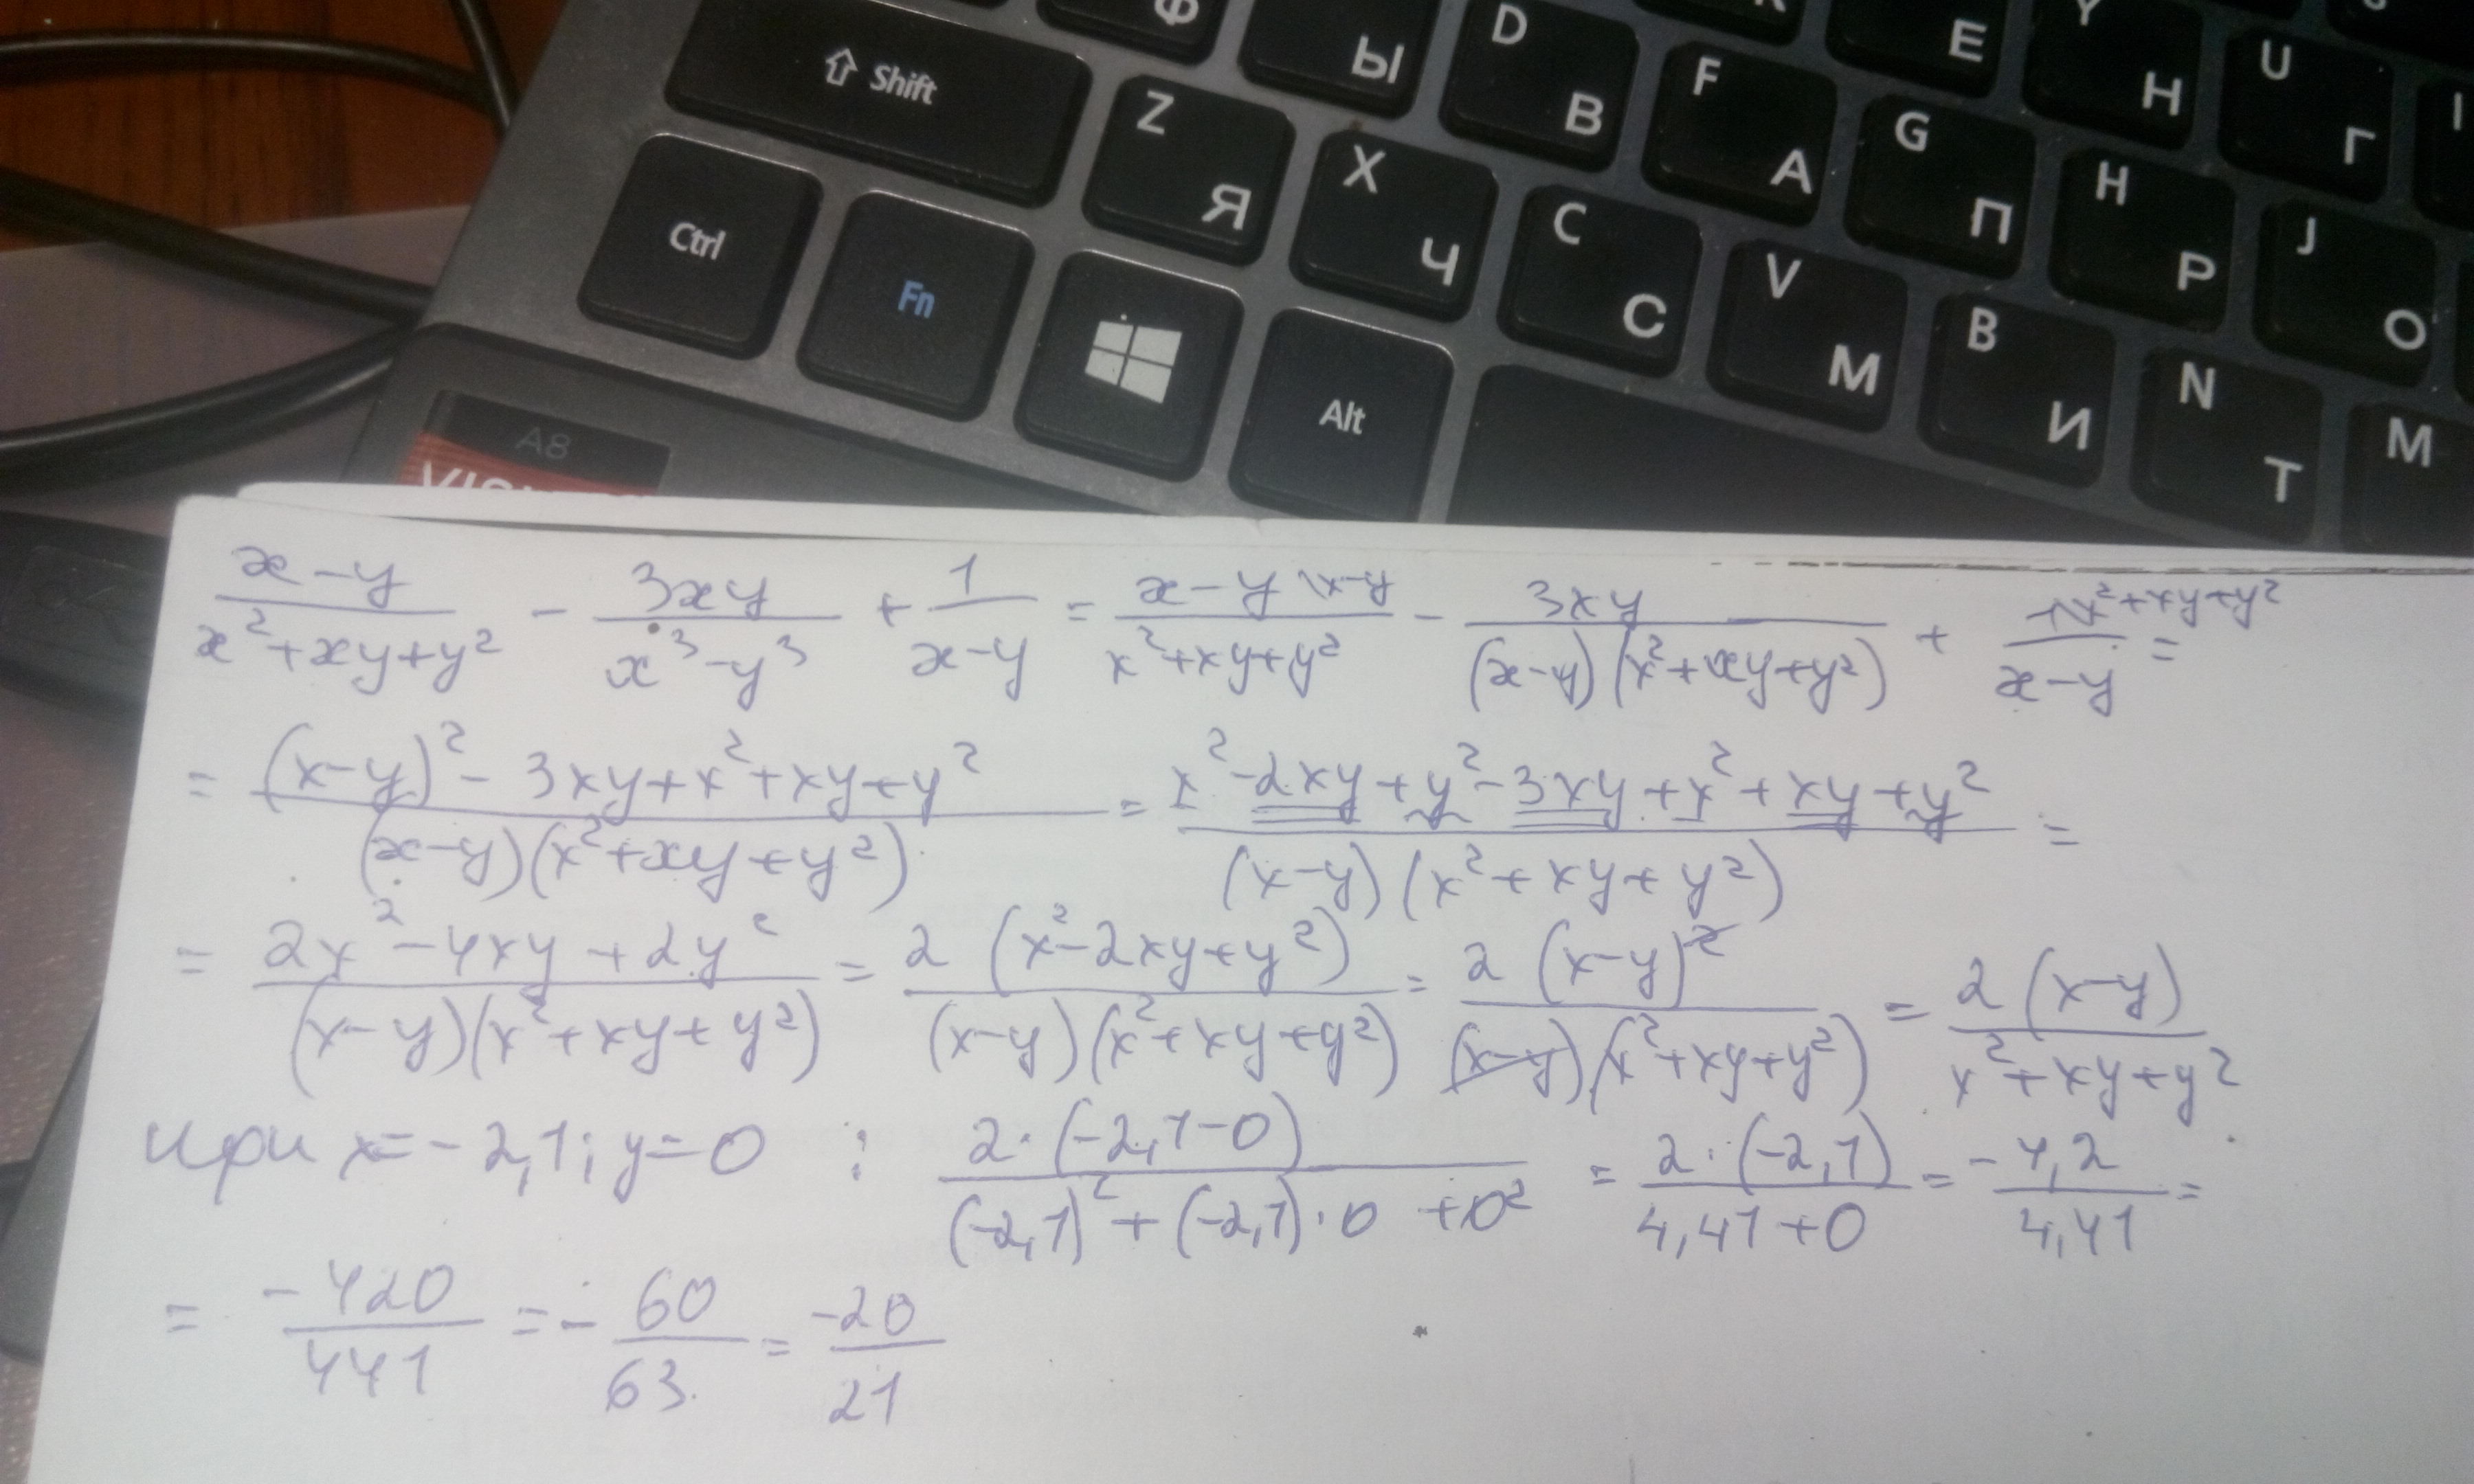 Ф Ы D В К Е Y Н U Г I
⇧ Shift Z Я X Ч C С F А G П H Р J О
Ctrl Fn Alt V М B И N Т M
A8
x-y/x²+xy+y² - 3xy/x³-y³ + 1/x-y = x-y \x-y/x²+xy+y² - 3xy/(x-y)(x²+xy+y²) + 1\x²+xy+y²/x-y =
= (x-y)² - 3xy+x²+xy+y²/(x-y)(x²+xy+y²) = x²-2xy+y²-3xy+x²+xy+y²/(x-y)(x²+xy+y²) =
= 2x²-4xy+2y²/(x-y)(x²+xy+y²) = 2(x²-2xy+y²)/(x-y)(x²+xy+y²) = 2(x-y)²/(x-y)(x²+xy+y²) = 2(x-y)/x²+xy+y²
при x=-2,1; y=0 : 2·(-2,1-0)/(-2,1)²+(-2,1)·0+0² = 2·(-2,1)/4,41+0 = -4,2/4,41 =
= -420/441 = -60/63 = -20/21